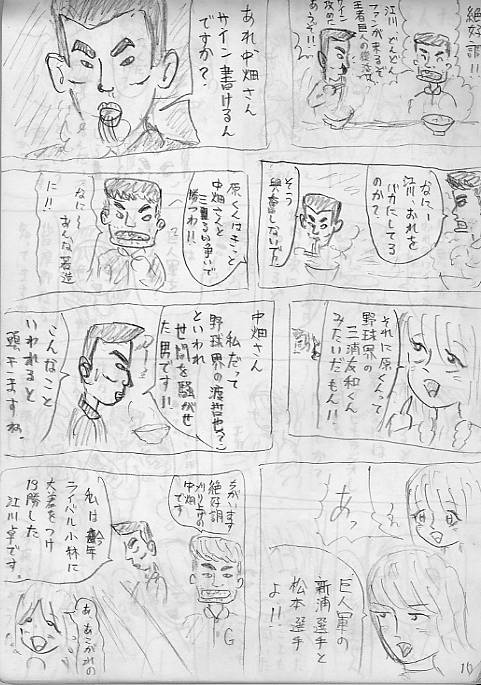 絶好調!!
江川どんどん
ファンが来るぞ
サイン
攻め
あうぞ!!
あれ中畑さん
サイン書けるん
ですか?
なにー
江川、おれを
バカにしてる
のか?
そう
興奮しないで
原くんはきっと
中畑さんと
三塁るい争いで
勝つわ!!
なに〜
あんな若造
に!!
それに原くんって
野球界の
三浦友和くん
みたいだもん!!
中畑さん
私だって
野球界の渡哲也?
といわれ
世間を騒がせ
た男です!!
こんなこと
いわれると
頭干ますね。
あっ
巨人軍の
新浦選手と
松本選手
よ!!
ちがいます
絶好調
刈り上げの
中畑
です
G
私は昨年
ライバル小林に
大差をつけ
13勝した
江川卓です。
ああこがれの
10